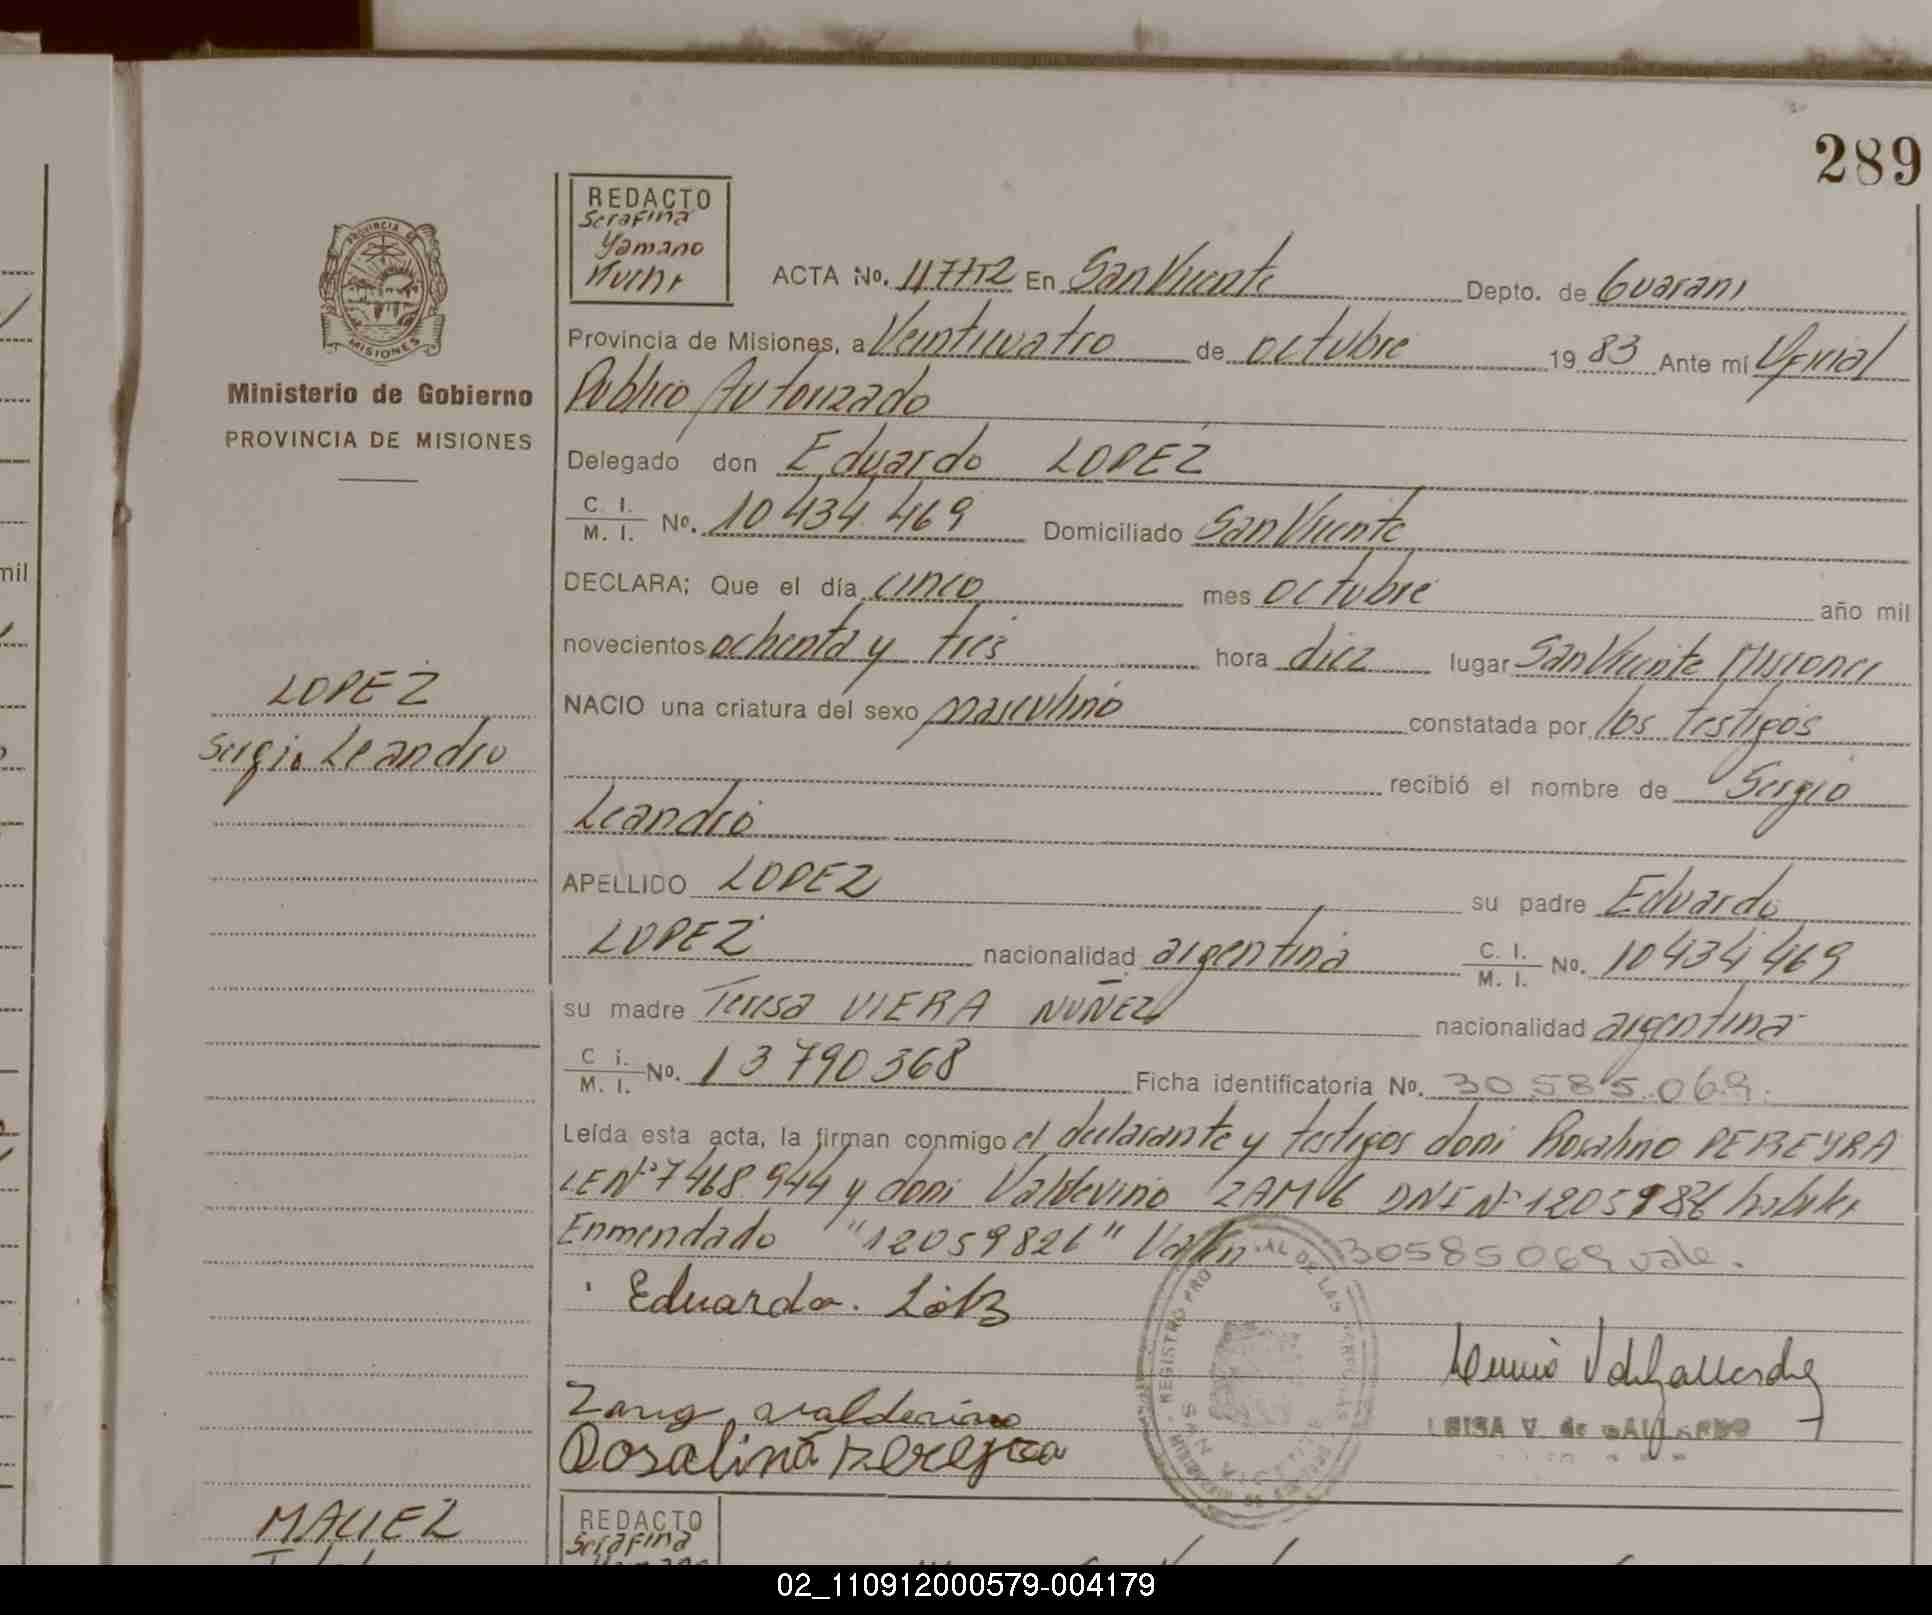 289
REDACTO
Serafina
Yamano
PROVINCIA DE
MISIONES
ACTA No. En San Vicente Depto. de Guarani
Provincia de Misiones, a Veinticuatro de octubre 19 83 Ante mí Oficial
Ministerio de Gobierno
Publico Autorizado
PROVINCIA DE MISIONES
Delegado don Eduardo LOPEZ
C. I. / M. I. No. 10434.469 Domiciliado San Vicente
DECLARA; Que el día cinco mes octubre año mil
novecientos ochenta y tres hora diez lugar San Vicente Misiones
LOPEZ
NACIO una criatura del sexo masculino constatada por los testigos
Sergio Leandro
recibió el nombre de Sergio
Leandro
APELLIDO LOPEZ su padre Eduardo
LOPEZ nacionalidad argentina C. I. / M. I. No. 10434469
su madre Teresa VIERA NUÑEZ nacionalidad argentina
C i. / M. I. No. 13790368 Ficha identificatoria No. 30.585.069.
Leída esta acta, la firman conmigo el declarante y testigos doni Rosalino PEREYRA
LE Nº 7468944 y doni Valdevino ZANG DNI Nº
Enmendado "12059826" Valen 30585069 vale.
Eduardo.
Zang, valdevino
LUISA V. de GALLARDO
Rosalino Pereyra
SAN VICENTE
MACIEL
REDACTO
Serafina
mil
02_110912000579-004179